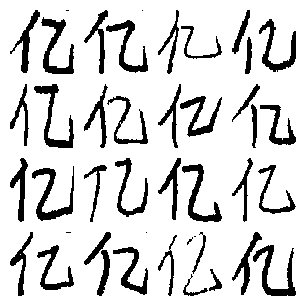 亿亿亿亿
亿亿亿亿
亿亿亿亿
亿亿亿亿